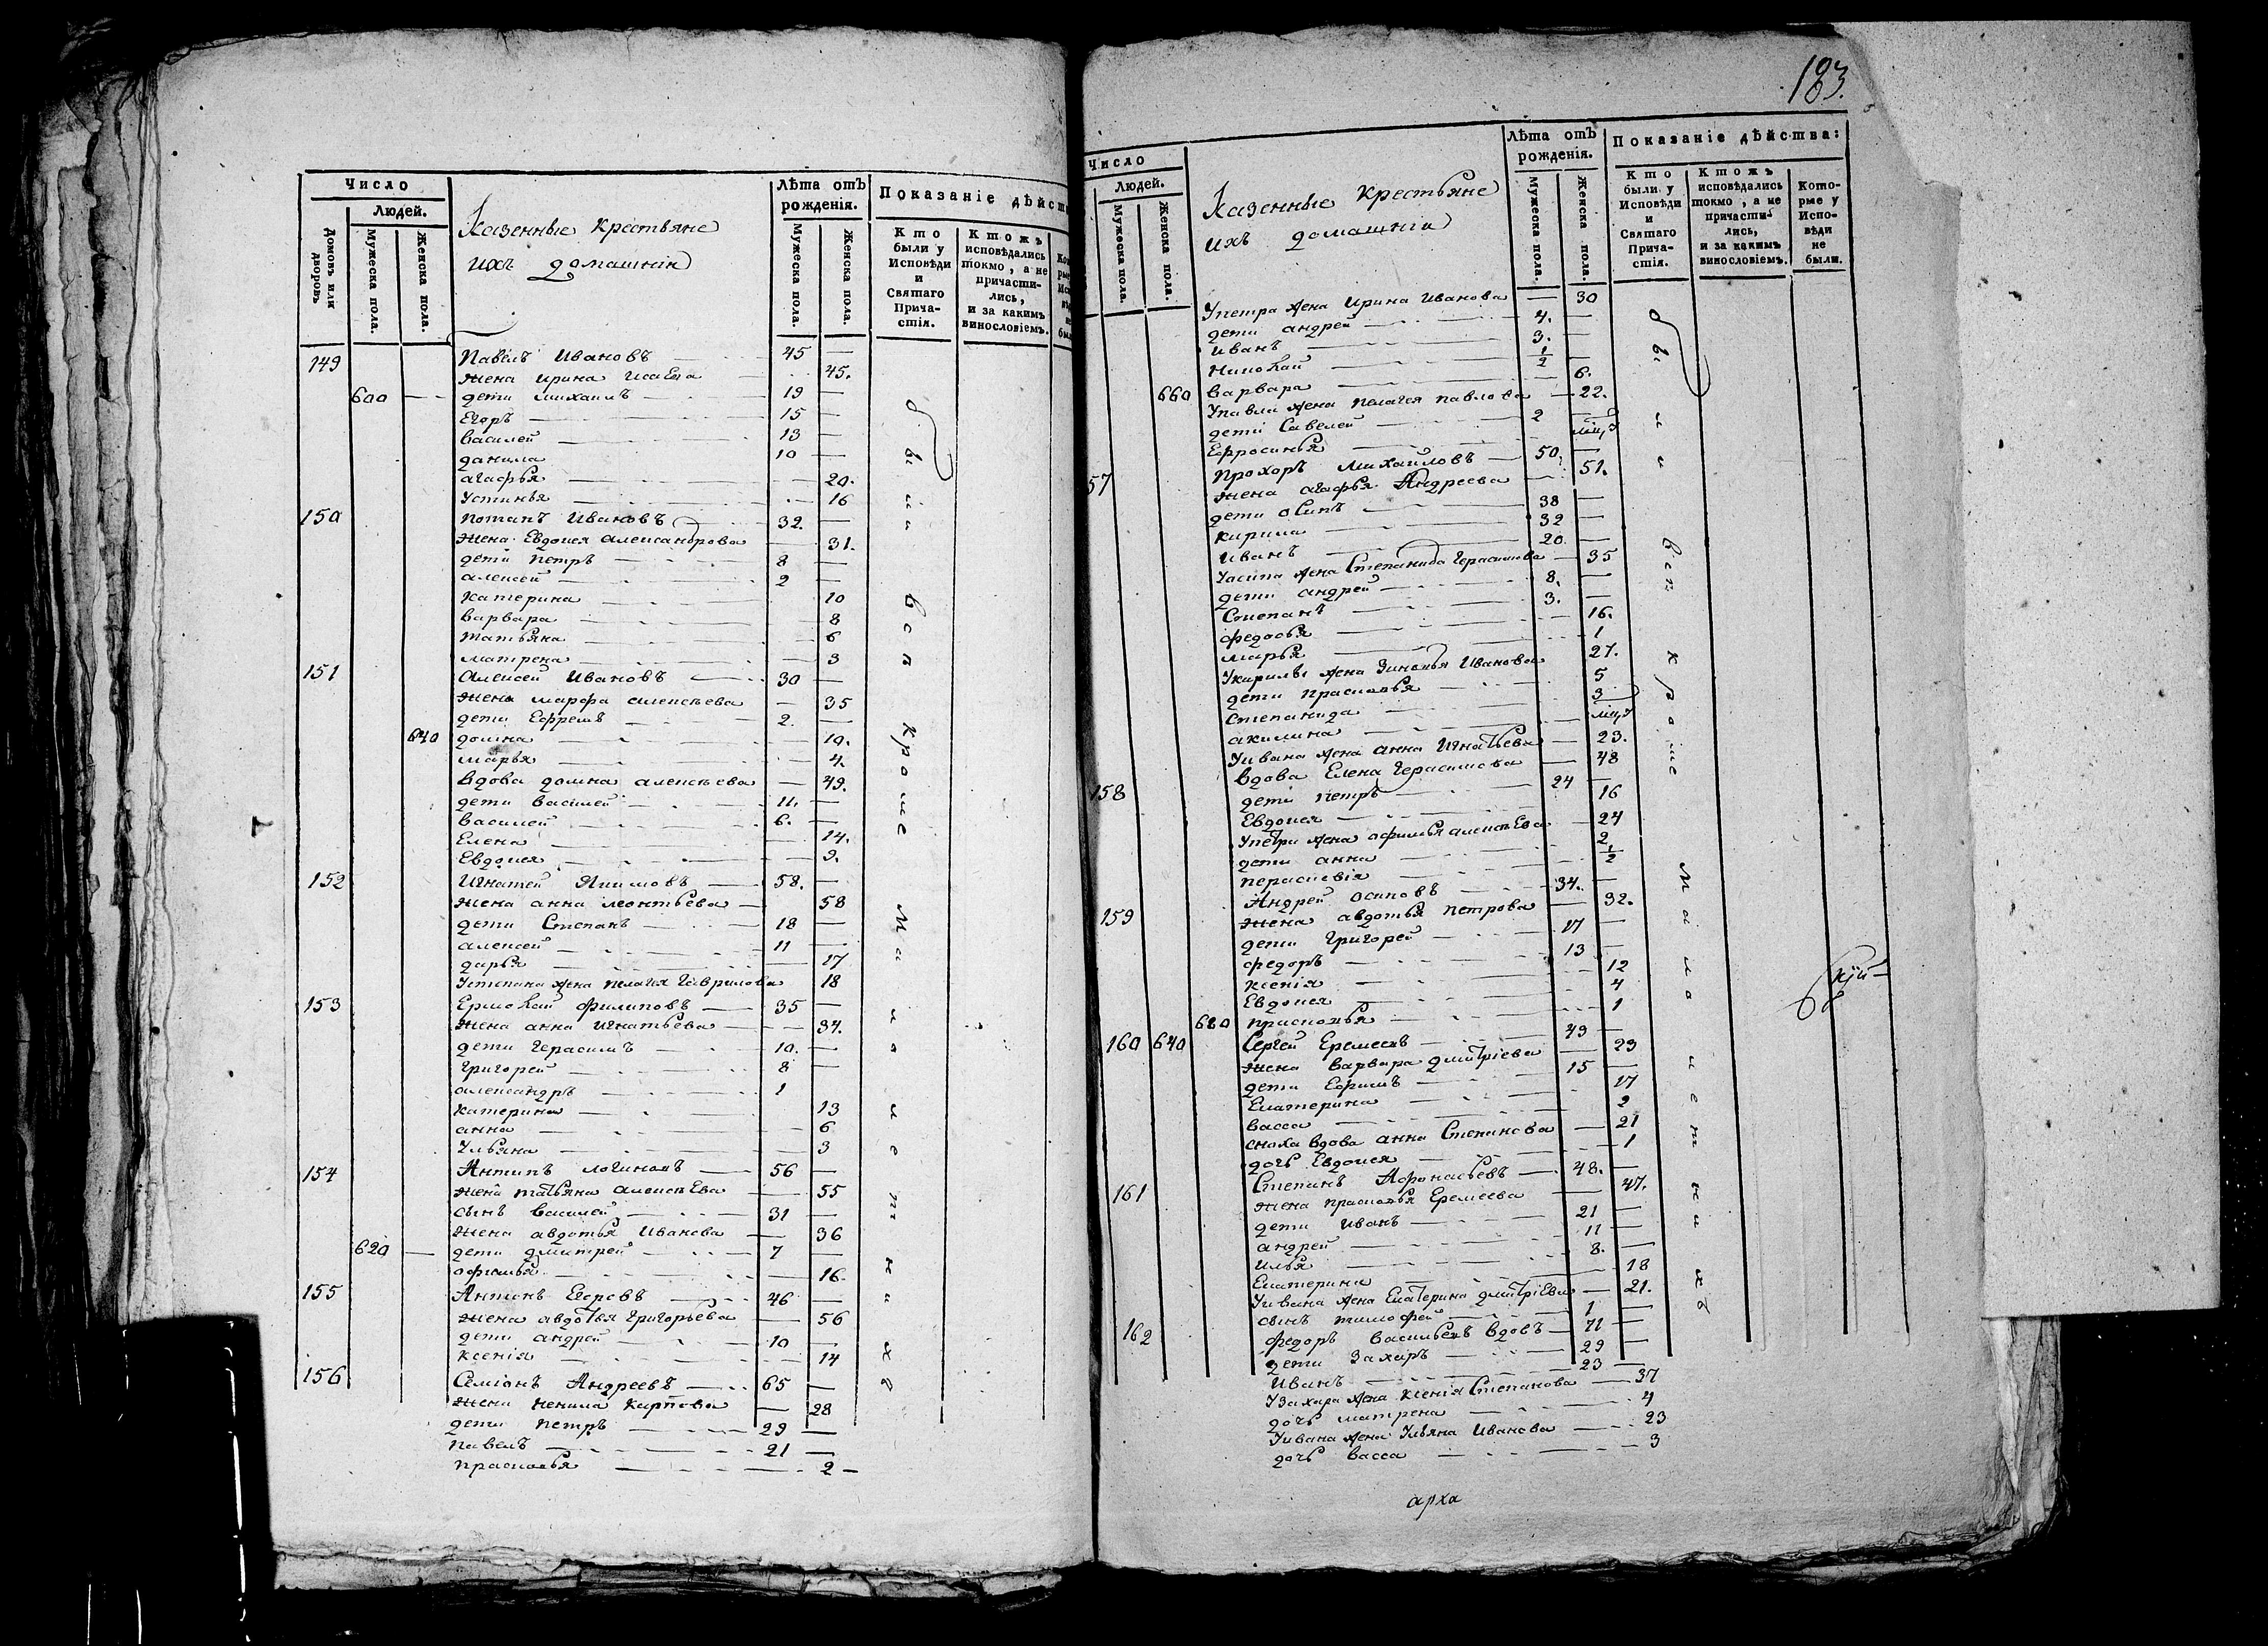 Число
Людей.
Домовъ или дворовъ
Мужеска пола.
Женска пола.
Казенные крестьяне
ихъ домашнiи
Лѣта отъ рожденiя.
Мужеска пола.
Женска пола.
Показанiе дѣйст
Кто были у Исповѣди и Святаго Причастiя.
Ктожъ исповѣдались токмо, а не причастились, и за какимъ винословiемъ.
149 Павелъ Ивановъ 45
жена Ирина Исаева 45.
600 дети Михаилъ 19
Егоръ 15
Василей 13
данила 10
агафья 20.
Устинья 16
150 Потапъ Ивановъ 32.
жена Евдокея александрова 31.
дети Петръ 8
алексей 2
Катерина 10
варвара 8
татьяна 6
матрена 3
151 Алексей Ивановъ 30
жена марфа алексеева 35
дети Ефремъ 2.
640 домна 10.
марья 4.
вдова домна алексеева 49.
дети василей 11.
василей 6.
Елена 14.
Евдокея 9.
152 Игнатей Якимовъ 58.
жена анна леонтьева 58
дети Степанъ 18
алексей 11
дарья 17
Устепана жена пелагея Гаврилова 18
153 Ермолай Филиповъ 35
жена анна Игнатьева 34.
дети Герасимъ 10.
Григорей 8
александръ 1
катерина 13
анна 6
Ульяна 3
154 Антипъ логиновъ 56
жена татьяна алексеева 55
сынъ василей 31
жена авдотья Иванова 36
620 дети дмитрей 7
афимья 16.
155 Антипъ Егоровъ 46
жена авдотья Григорьева 56
дети андрей 10
ксенiя 14
156 Семiонъ Андреевъ 65
жена ненила Карпова 28
дети Петръ 29
павелъ 21
прасковья 2
были вси кроме малолетнихъ
183.
Число
Людей.
Мужеска пола.
Женска пола.
Казенные крестьяне
ихъ домашнiи
Лѣта отъ рожденiя.
Мужеска пола.
Женска пола.
Показанiе дѣйства:
Кто были у Исповѣди и Святаго Причастiя.
Ктожъ исповѣдались токмо, а не причастились, и за какимъ винословiемъ.
Которые у Исповѣди не были.
Упетра жена Ирина Иванова 30
дети андрей 4.
Иванъ 3.
Николай 1/2
660 варвара 6.
Упавла жена пелагея павлова 22.
дети Савелей 2
Ефросинья
57 Прохоръ Михайловъ 50.
жена агафья Андреева 51.
дети осипъ 38
кирила 32
Иванъ 20.
Уосипа жена Степанида Герасимова 35
дети андрей 8.
Степанъ 3.
федосья 16.
марья 1
Укирилы жена Зиновья Иванова 27.
дети прасковья 5
степанида 3
акилина
Уивана жена анна Игнатьева 23.
158 вдова Елена Герасимова 48
дети петръ 24
Евдокея 16
Упетра жена афимья алексеева 24
дети анна 2
1/2
159 Андрей осиповъ 34.
жена авдотья петрова 32.
дети Григорей 17
федоръ 13
ксенiя 12
Евдокея 4
680 прасковья 1
160 640 Сергей Еремеевъ 49
жена варвара дмитрiева 29
дети Ефимъ 15
Екатерина 17
васса 2
сноха вдова анна Степанова 21
дочь Евдокея 1
161 Степанъ Афонасьевъ 48.
жена прасковья Еремеева 47.
дети Иванъ 21
андрей 11
Илья 8.
Екатерина 18
Уивана жена Екатерина дмитрiева 21.
сынъ тимофей 1
162 Федоръ васильевъ вдовъ 71
дети Захаръ 29
Иванъ 23
Узахара жена ксенiя Степанова 37
дочь матрена 4
Уивана жена Ульяна Иванова 23
дочь васса 3
были вси кроме малолетнихъ
арха